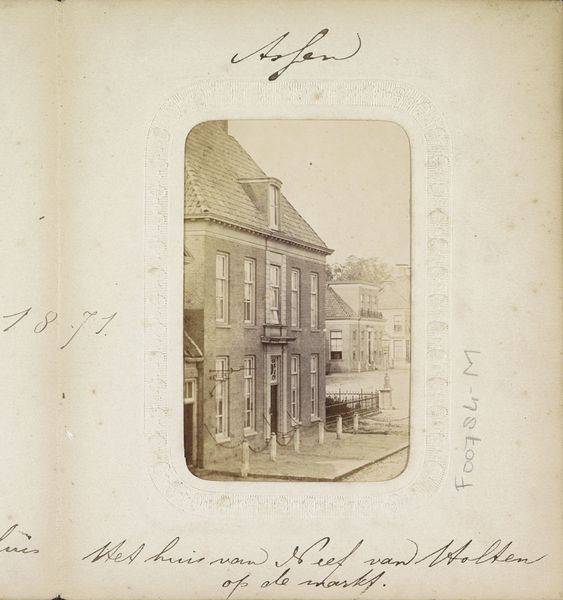 Assen
1871.
F00784-M
huis
Het huis van Neef van Holten
op de markt.